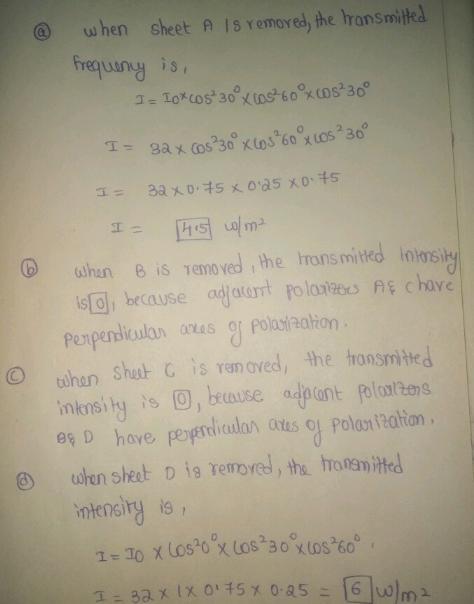 (a) when sheet A is removed, the transmitted
frequency is,
I = I0 x cos²30° x cos²60° x cos²30°
I = 32 x cos²30° x cos²60° x cos²30°
I = 32 x 0.75 x 0.25 x 0.75
I = 4.5 w/m²
(b) when B is removed, the transmitted intensity
is 0, because adjacent polarizers A & C have
perpendicular axes of polarization.
(c) when sheet C is removed, the transmitted
intensity is 0, because adjacent polarizers
B & D have perpendicular axes of polarization.
(d) when sheet D is removed, the transmitted
intensity is,
I = I0 x cos²0° x cos²30° x cos²60°.
I = 32 x 1 x 0.75 x 0.25 = 6 w/m²